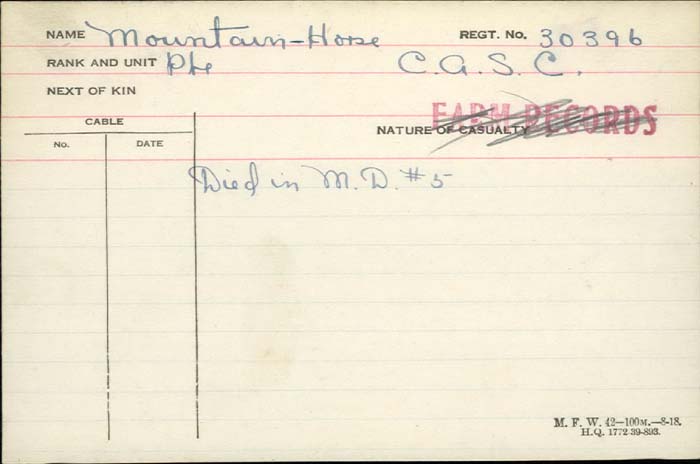 NAME Mountain-Horse REGT. NO. 30396
RANK AND UNIT Pte C.A.S.C.
NEXT OF KIN
FARM RECORDS
CABLE
NATURE OF CASUALTY
No. DATE
Died in M.D. #5
M. F. W. 42—100M.—8-18.
H.Q. 1772-39-893.